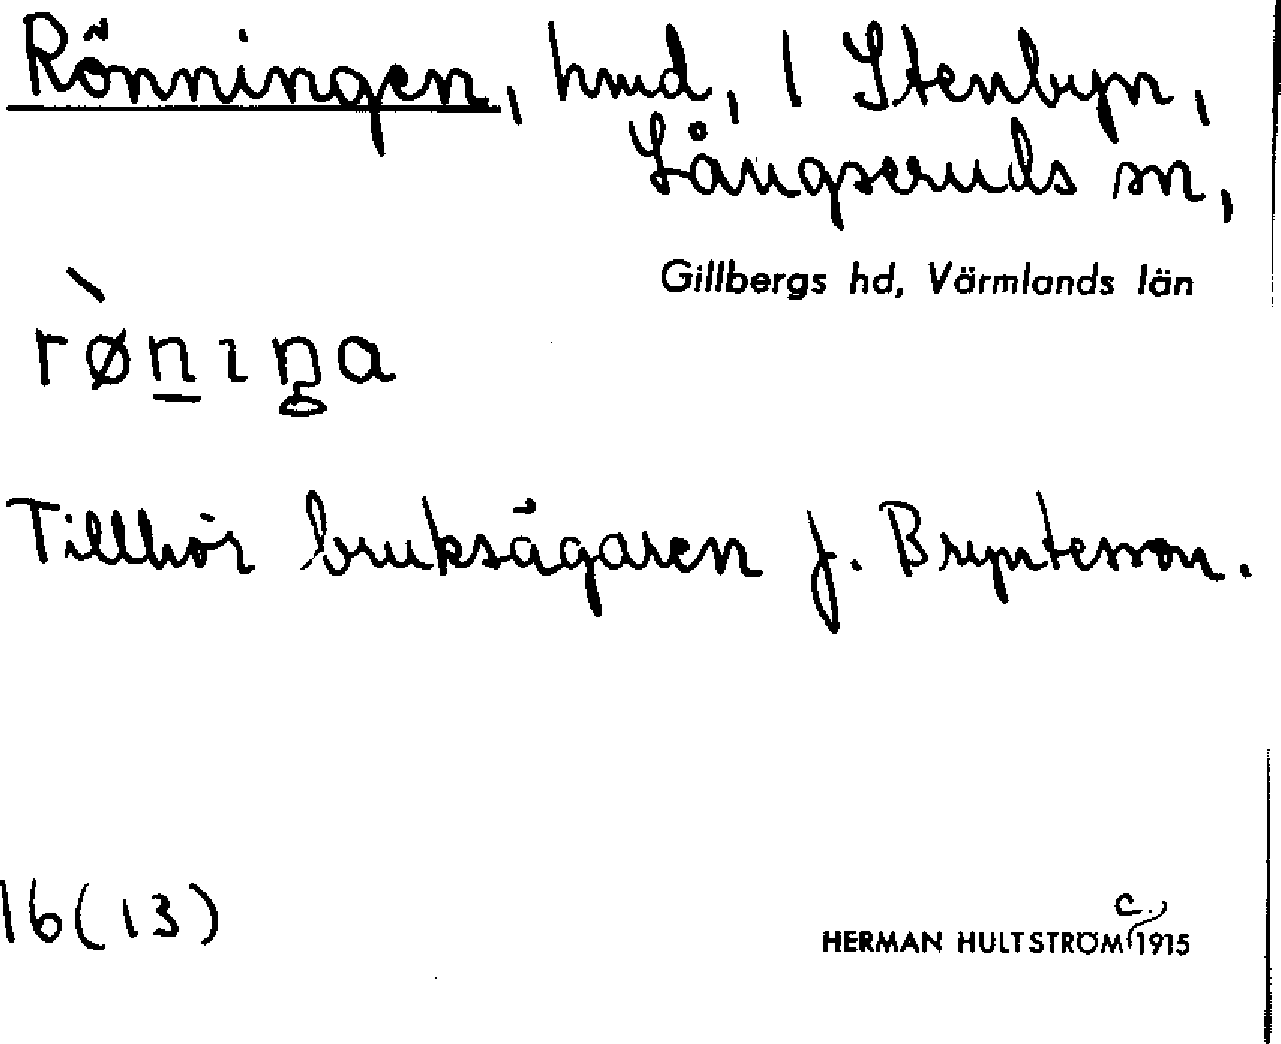 Rönningen, hmd, 1 Stenbyn,
Långseruds sn,
Gillbergs hd, Värmlands län
rø̀n̲ıŋa
Tillhör bruksägaren J. Bryntesson.
16(13)
HERMAN HULTSTRÖM c. 1915